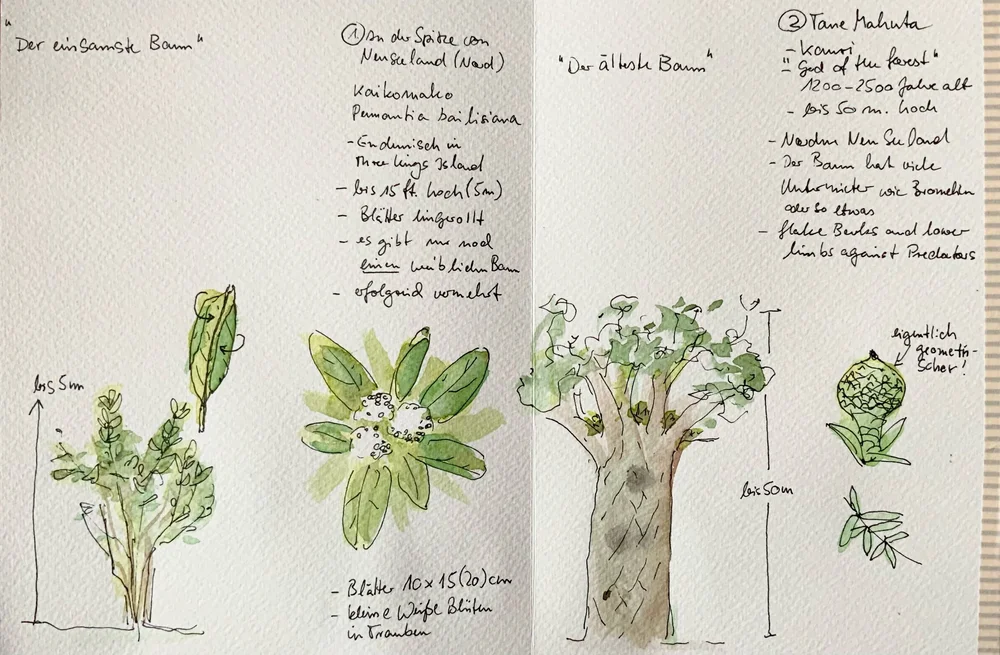 "Der einsamste Baum"
① An der Spitze von
Neuseeland (Nord)
Kaikomako
Pennantia bailisiana
- Endemisch in
Three Kings Island
- bis 15 ft. hoch (5m)
- Blätter eingerollt
- es gibt nur noch
einen weiblichen Baum
- erfolgreich vermehrt
bis 5m
- Blätter 10 x 15 (20) cm
- kleine weiße Blüten
in Trauben
"Der älteste Baum"
② Tane Mahuta
- Kauri
- "God of the forest"
1200-2500 Jahre alt
- bis 50 m. hoch
- Norden Neu Seeland
- Der Baum hat viele
Untermieter wie Bromelien
oder so etwas
- flake Barks and lower
limbs against Predators
eigentlich
geometri-
scher!
bis 50m